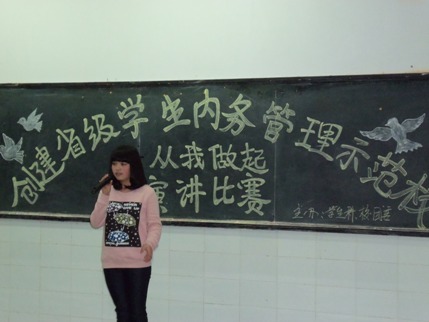 创建省级学生内务管理示范校
从我做起
演讲比赛
主办:学生科、校团委